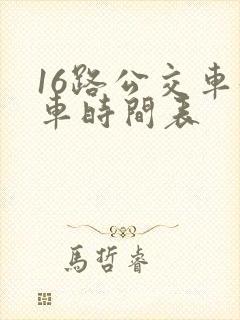 16路公交車
車時間表
馬哲睿